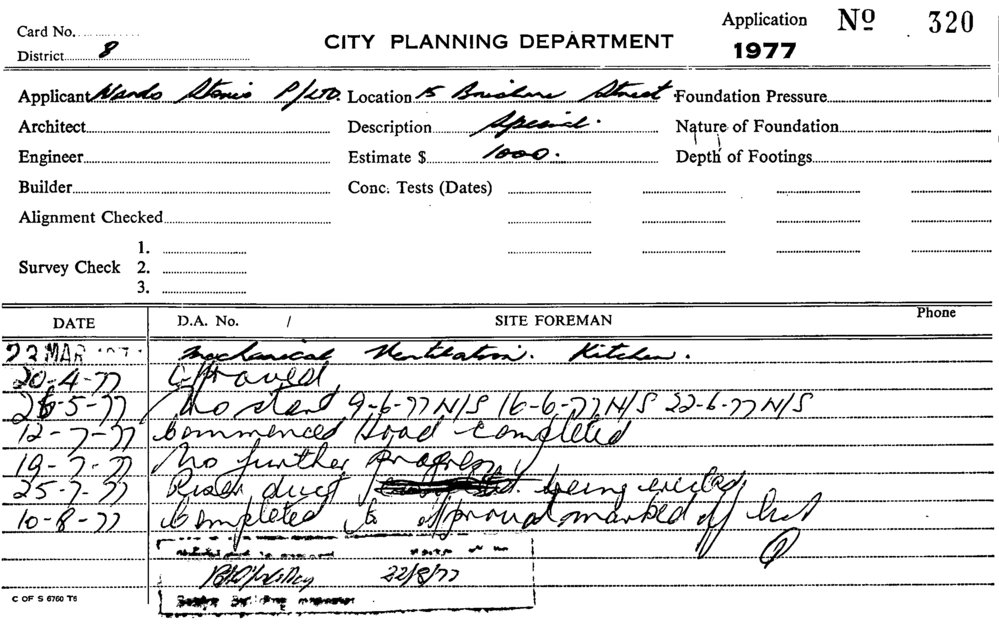 Card No.
Application Nº 320
District 8
CITY PLANNING DEPARTMENT
1977
Applicant Nardo Stores P/LTD. Location 15 Brisbane Street Foundation Pressure
Architect Description Special. Nature of Foundation
Engineer Estimate $ 1000. Depth of Footings
Builder Conc. Tests (Dates)
Alignment Checked
1.
Survey Check 2.
3.
DATE D.A. No. / SITE FOREMAN Phone
23 MAR Mechanical Ventilation. Kitchen.
20-4-77 Approved
5-77 No start 9-6-77 N/S 16-6-77 N/S 22-6-77 N/S
12-7-77 Commenced Hood completed
19-7-77 No further progress
25-7-77 Riser duct being erected
10-8-77 Completed to approval marked off list
22/8/77
C OF S 6760 T6